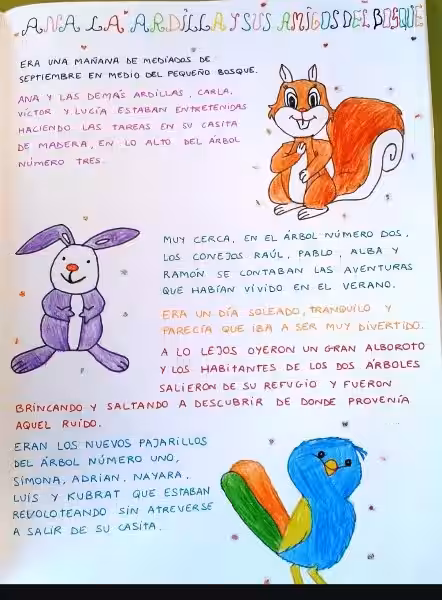 ANA LA ARDILLA Y SUS AMIGOS DEL BOSQUE
ERA UNA MAÑANA DE MEDIADOS DE
SEPTIEMBRE EN MEDIO DEL PEQUEÑO BOSQUE.
ANA Y LAS DEMÁS ARDILLAS, CARLA,
VÍCTOR Y LUCÍA ESTABAN ENTRETENIDAS
HACIENDO LAS TAREAS EN SU CASITA
DE MADERA, EN LO ALTO DEL ÁRBOL
NÚMERO TRES.
MUY CERCA, EN EL ÁRBOL NÚMERO DOS,
LOS CONEJOS RAÚL, PABLO, ALBA Y
RAMÓN SE CONTABAN LAS AVENTURAS
QUE HABÍAN VIVIDO EN EL VERANO.
ERA UN DÍA SOLEADO, TRANQUILO Y
PARECÍA QUE IBA A SER MUY DIVERTIDO.
A LO LEJOS OYERON UN GRAN ALBOROTO
Y LOS HABITANTES DE LOS DOS ÁRBOLES
SALIERON DE SU REFUGIO Y FUERON
BRINCANDO Y SALTANDO A DESCUBRIR DE DONDE PROVENÍA
AQUEL RUIDO.
ERAN LOS NUEVOS PAJARILLOS
DEL ÁRBOL NÚMERO UNO,
SIMONA, ADRIAN, NAYARA,
LUIS Y KUBRAT QUE ESTABAN
REVOLOTEANDO SIN ATREVERSE
A SALIR DE SU CASITA.